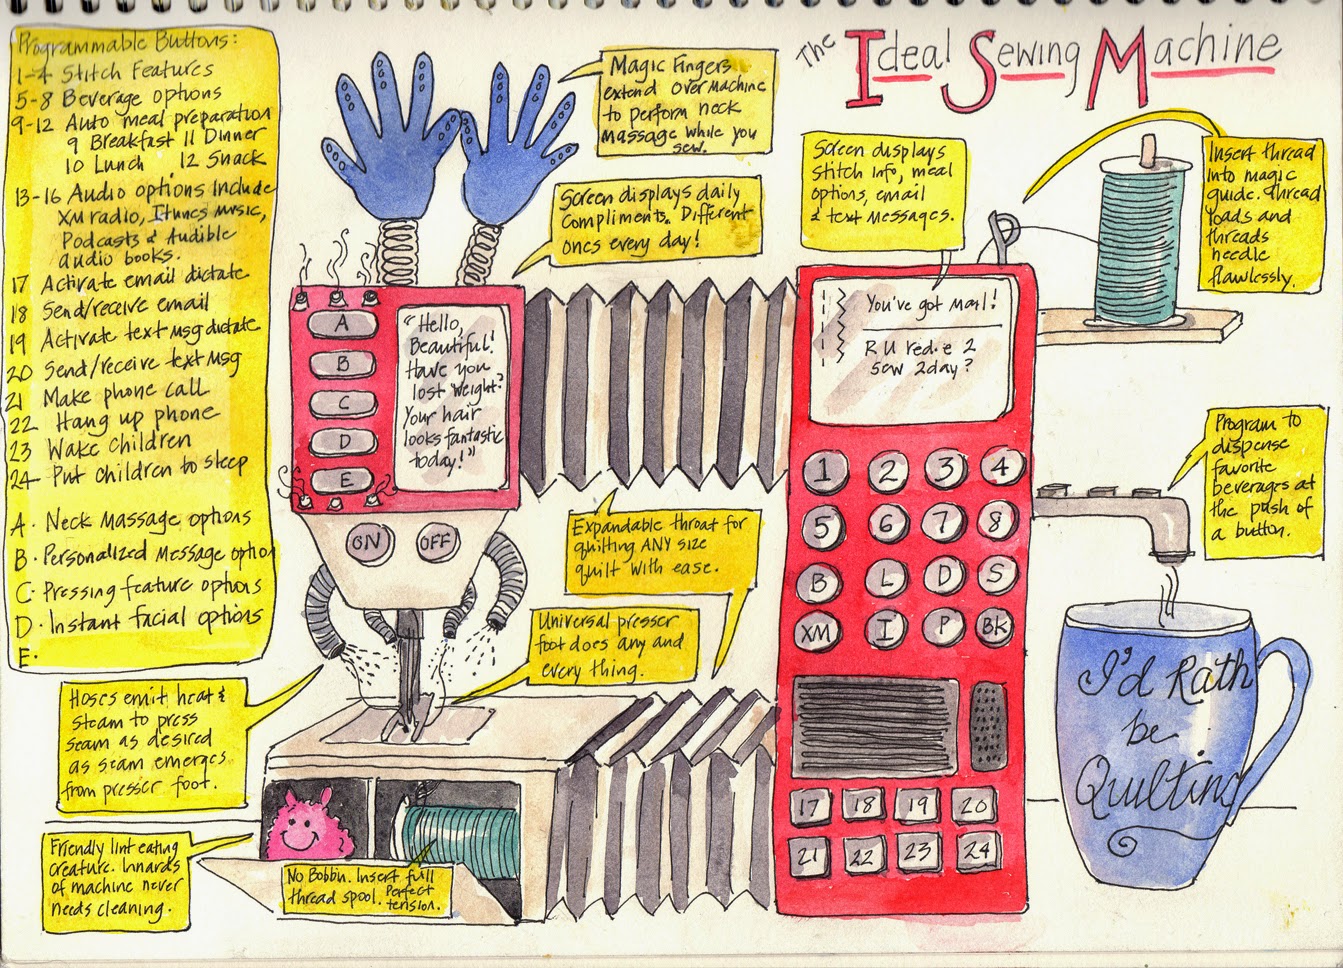 The Ideal Sewing Machine
Programmable Buttons:
1-4 Stitch Features
5-8 Beverage options
9-12 Auto meal preparation
9 Breakfast 11 Dinner
10 Lunch 12 Snack
13-16 Audio options include
XM radio, Itunes music,
Podcasts & Audible
audio books.
17 Activate email dictate
18 Send/receive email
19 Activate text msg dictate
20 Send/receive text msg
21 Make phone call
22 Hang up phone
23 Wake children
24 Put children to sleep
A. Neck Massage options
B. Personalized Message option
C. Pressing feature options
D. Instant facial options
E.
Magic Fingers
extend over machine
to perform neck
massage while you
sew.
Screen displays daily
compliments. Different
ones every day!
Screen displays
stitch info, meal
options, email
& text messages.
Insert thread
into magic
guide. Thread
loads and
threads
needle
flawlessly.
A
B
C
D
E
"Hello,
Beautiful!
Have you
lost weight?
Your hair
looks fantastic
today!"
ON OFF
You've got mail!
R U red.e 2
sew 2day?
1 2 3 4
5 6 7 8
B L D S
XM I P BK
17 18 19 20
21 22 23 24
Program to
dispense
favorite
beverages at
the push of
a button.
Expandable throat for
quilting ANY size
quilt with ease.
Universal presser
foot does any and
every thing.
Hoses emit heat &
steam to press
seam as desired
as seam emerges
from presser foot.
Friendly lint eating
creature. Innards
of machine never
needs cleaning.
No Bobbin. Insert full
thread spool. Perfect
tension.
I'd Rath
be
Quilting